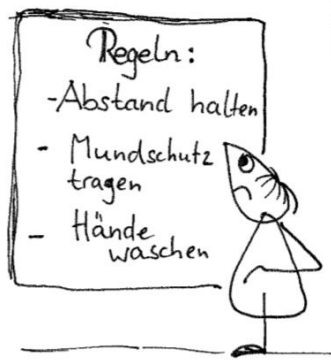 Regeln:
-Abstand halten
- Mundschutz
tragen
- Hände
waschen